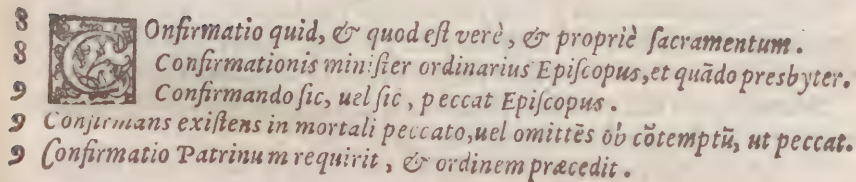 8 COnfirmatio quid, & quod eſt verè, & propriè ſacramentum.
8 Confirmationis miniſter ordinarius Epiſcopus, et quãdo presbyter.
9 Confirmando ſic, uel ſic, peccat Epiſcopus.
9 Confirmans exiſtens in mortali peccato, uel omittẽs ob cõtemptũ, ut peccat.
9 Confirmatio Patrinum requirit, & ordinem præcedit.